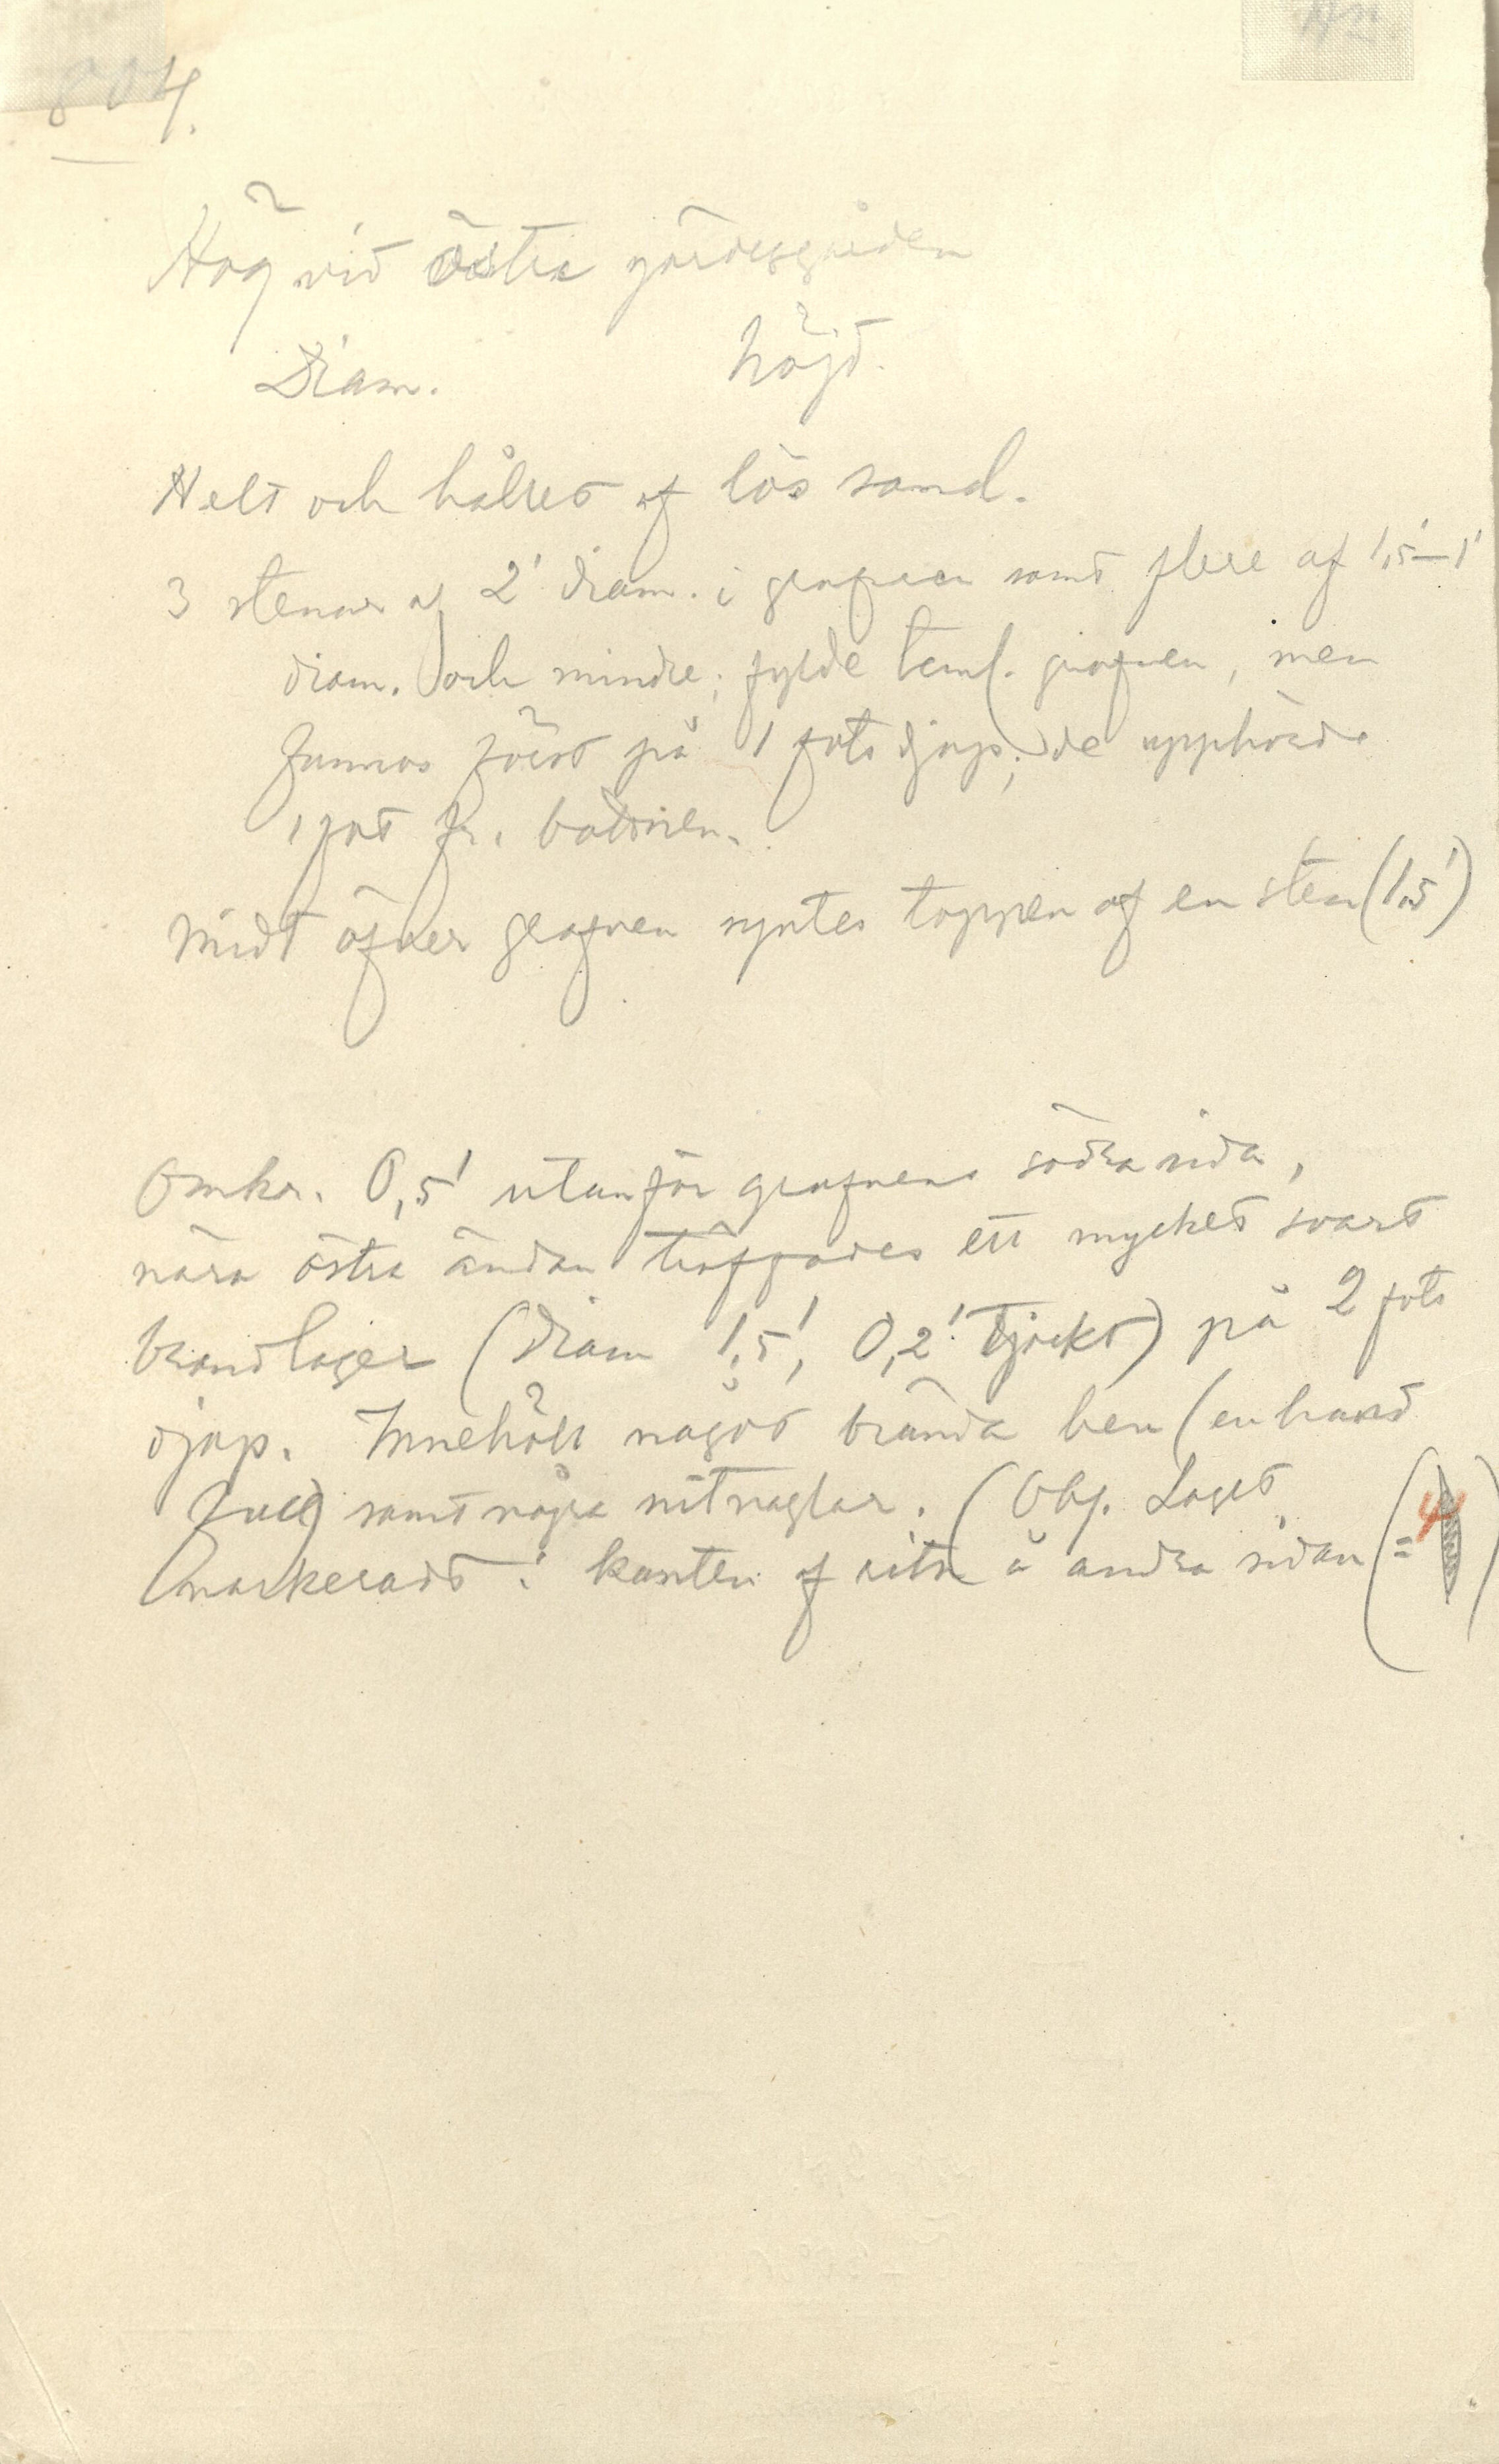 804.
Hög vid östra gärdesgården
Diam. höjd.
Helt och hållet af lös sand.
3 stenar af 2' diam. i grafven samt flere af 1,5'–1'
diam. och mindre; fylde teml. grafven, men
funnos först på 1 fots djup; de upphörde
1 fot fr. bottnen.
Midt öfver grafven syntes toppen af en sten (1,5')
Omkr. 0,5' utanför grafvens södra sida,
nära östra ändan träffades ett mycket svart
brandlager (diam 1,5', 0,2' tjockt) på 2 fots
djup. Innehöll något brända ben (en hand
full) samt några nitnaglar. (Obj. Laget
markeradt i kanten af ritn å andra sidan (= 4)